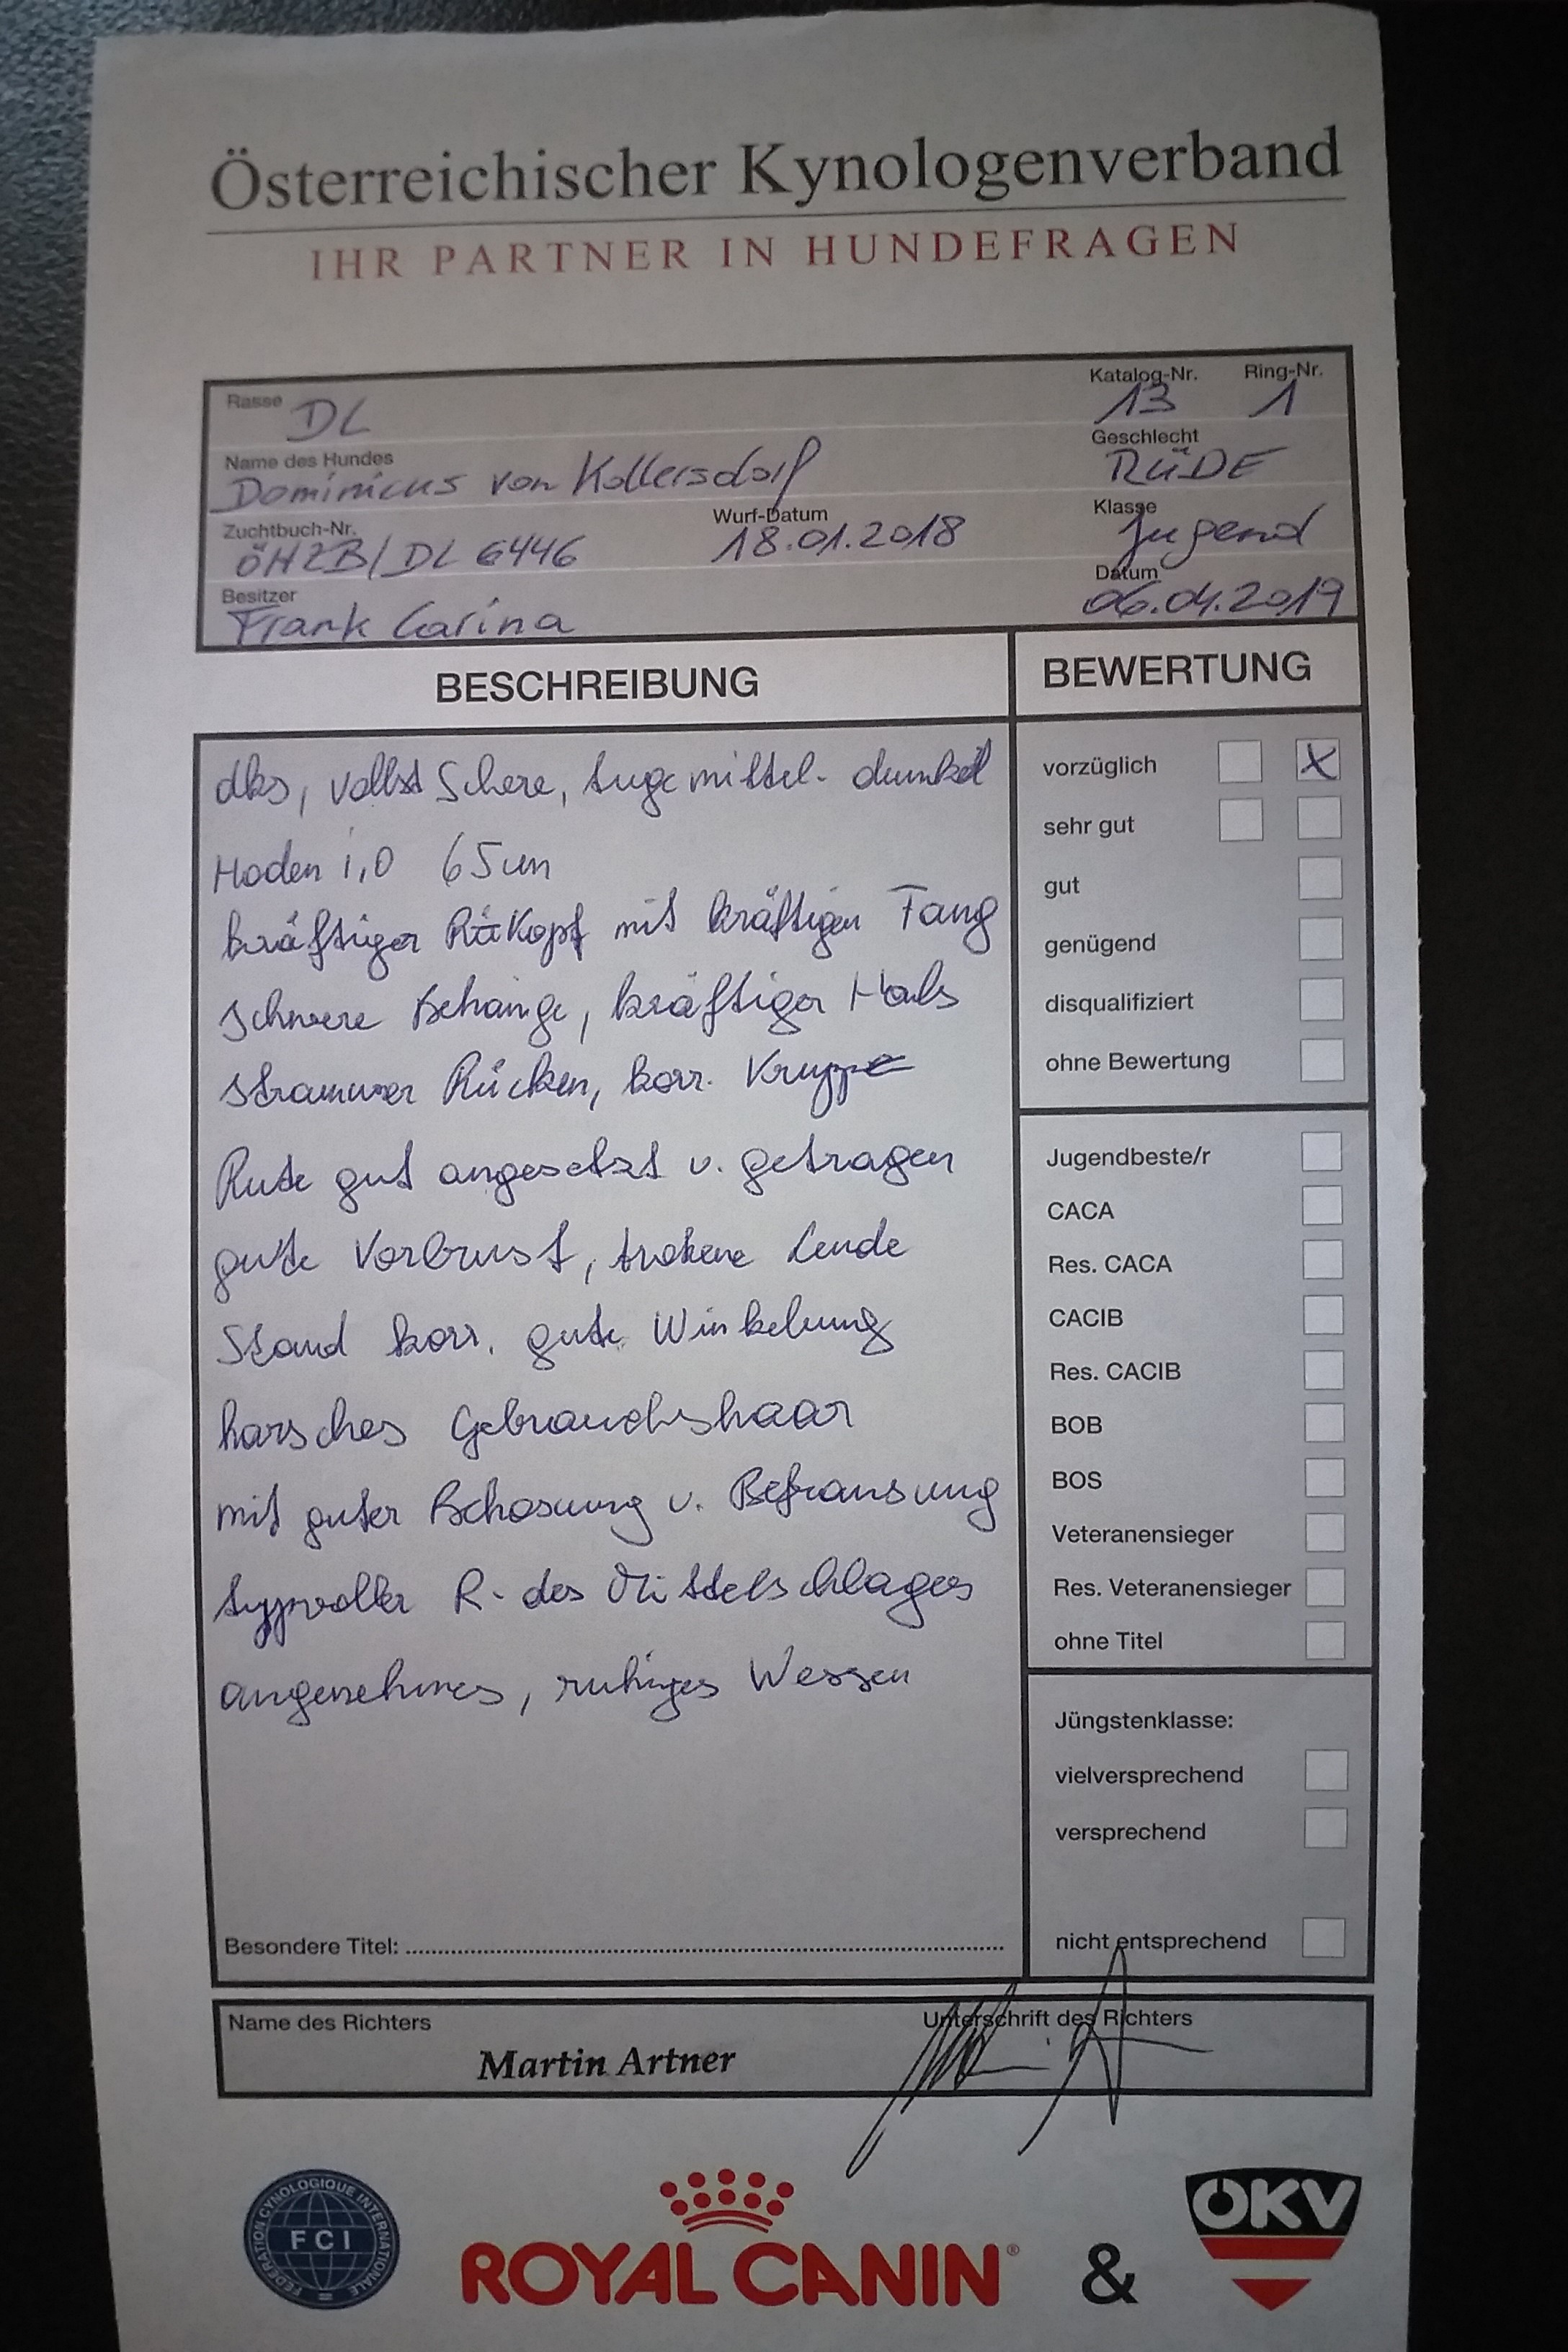 Österreichischer Kynologenverband
IHR PARTNER IN HUNDEFRAGEN
Rasse DL Katalog-Nr. 13 Ring-Nr. 1
Name des Hundes Dominicus von Kollersdorf Geschlecht RÜDE
Zuchtbuch-Nr. ÖHZB/DL 6446 Wurf-Datum 18.01.2018 Klasse Jugend
Besitzer Frank Carina Datum 06.04.2019
BESCHREIBUNG
dks, vollst Schere, Auge mittel- dunkel
Hoden i,O 65cm
kräftiger RüKopf mit kräftigen Fang
schwere Behänge, kräftiger Hals
strammer Rücken, korr. Kruppe
Rute gut angesetzt u. getragen
gute Vorbrust, trokene Lende
Stand korr. gute Winkelung
harsches Gebrauchshaar
mit guter Behosung u. Befransung
typvoller R. des Mittelschlages
angenehmes, ruhiges Wessen
Besondere Titel:
BEWERTUNG
vorzüglich X
sehr gut
gut
genügend
disqualifiziert
ohne Bewertung
Jugendbeste/r
CACA
Res. CACA
CACIB
Res. CACIB
BOB
BOS
Veteranensieger
Res. Veteranensieger
ohne Titel
Jüngstenklasse:
vielversprechend
versprechend
nicht entsprechend
Name des Richters Unterschrift des Richters
Martin Artner
FEDERATION CYNOLOGIQUE INTERNATIONALE
FCI
ROYAL CANIN® & ÖKV